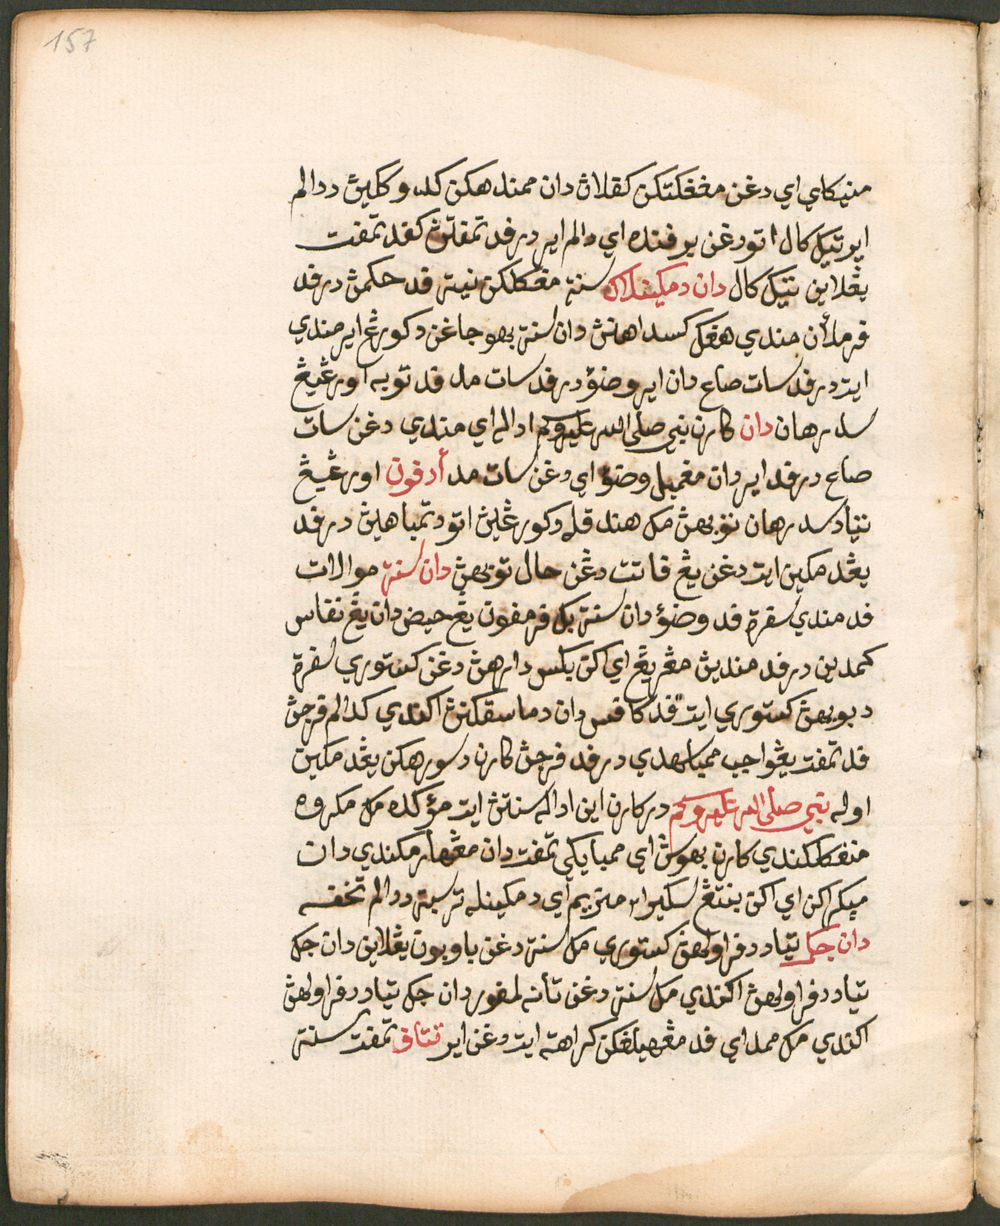 157
منيكاي اي دغن مڠڠكتكن كڤلاڽ دان ممندهكن كدوكلين ددالم
اير تيݢ كال اتو دغن برڤنده اي دالم اير درڤد تمڤتڽ كڤد تمڤت
يڠلاين تيݢ كال دان دمكينله سنة مڠكلكن نية ڤد حكمڽ درڤد
ڤرملأن مندي هڠݢ كسداهنڽ دان سنة بهوجاڠن دكورڠ اير مندي
ايت درڤد سات صاع دان اير وضؤ درڤد سات مد ڤد توبه اورڠيڠ
سدرهان دان كارن نبي صلى الله عليه وسلم اداله اي مندي دغن سات
صاع درڤد اير دان مڠمبل وضؤ اي دغن سات مد أدڤون اورڠيڠ
تياد سدرهان توبهڽ مك هندقله دكورڠيڽ اتو دتمباهيڽ درڤد
يڠدمكين ايت دغن يڠ ڤاتت دڠن حال توبهڽ دان سنة موالات
ڤد مندي سڤرة ڤد وضؤ دان سنة بݢ ڤرمڤون يڠ حيض دان يڠ نفاس
كمدين درڤد مندين مڠيريڠ اي اكن بكس دارهڽ دغن كستوري سڤرة
دبوبهڽ كستوري ايت ڤد كاڤس دان دماسقكنڽ اكندي كدالم فرجڽ
ڤد تمڤت يڠواجب ممباسهدي درڤد فرجڽ كارن دسورهكن يڠدمكين
اوله نبي صلى الله عليه وسلم در كارن اين اداله سنتڽ ايت مؤكده مك مكروه
منڠݢلكندي كارن بهوسڽ اي ممبايكي تمڤت دان مڠهارمكندي دان
ميݢراكن اي اكن بنتڠ سكيرا٢ منريم اي دمكينله ترسبت ددالم تحفه
دان جك تياد دڤراولهڽ كستوري مك سنة دغن باوبون يڠلاين دان جك
تياد دڤراولهڽ اكندي مك سنة دغن تانه لمڤور دان جك تياد دڤراولهڽ
اكندي مك ممداي ڤد مڠهيلڠكن كراهة ايت دغن اير تتاڤي تمڤت سنة